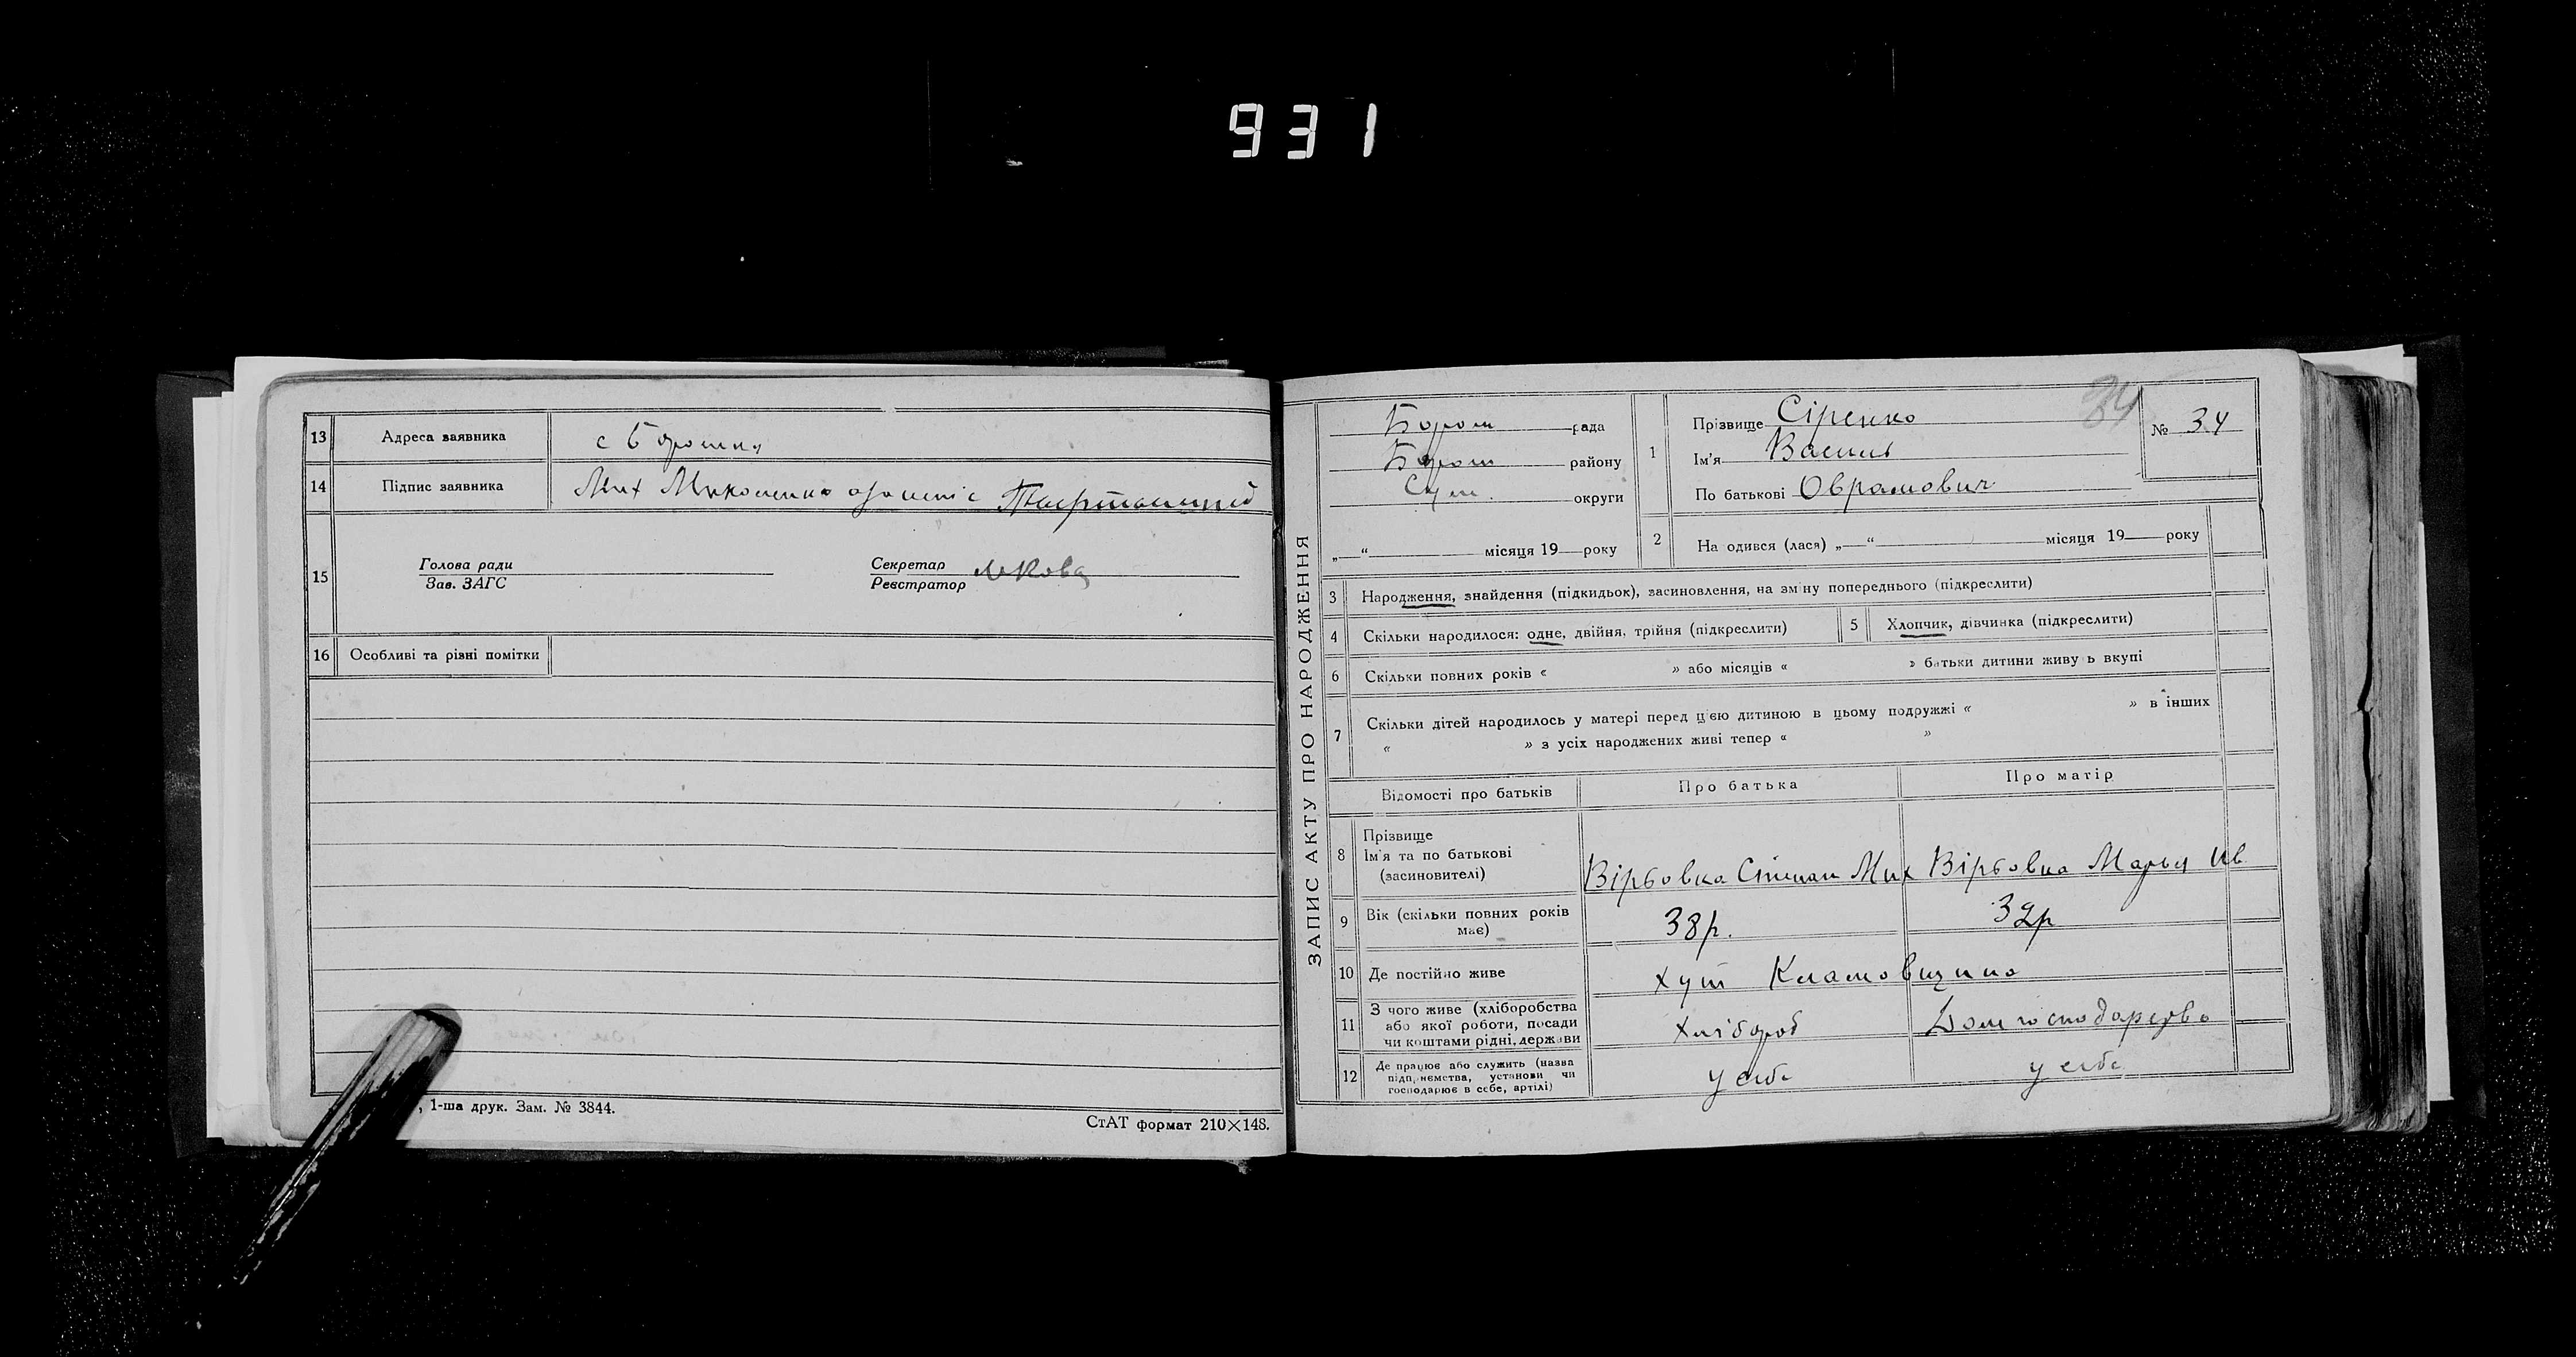 931
13 Адреса заявника с Боромля
14 Підпис заявника Мих Миколенко
15
Голова ради
Зав. ЗАГС
Секретар
Реєстратор
16 Особливі та різні помітки
, 1-ша друк. Зам. № 3844.
СтАТ формат 210×148.
ЗАПИС АКТУ ПРО НАРОДЖЕННЯ
Бором рада
Бором району
Сум. округи
„—“ місяця 19 року
1 Прізвище Сіренко
Ім'я Василь
По батькові Оврамович
34
№ 34
2 На одився (лася) „—“ місяця 19 року
3 Народження, знайдення (підкидьок), засиновлення, на зміну попереднього (підкреслити)
4 Скільки народилося: одне, двійня, трійня (підкреслити) 5 Хлопчик, дівчинка (підкреслити)
6 Скільки повних років « » або місяців « » батьки дитини живуть вкупі
7 Скільки дітей народилось у матері перед цією дитиною в цьому подружжі « » в інших
« » з усіх народжених живі тепер « »
Відомості про батьків Про батька Про матір
8 Прізвище
Ім'я та по батькові
(засновителі)
Вірьовка Стипан Мих Вірьовка Марья Ив
9 Вік (скільки повних років має) 38р. 32р
10 Де постійно живе хут
11 З чого живе (хліборобства
або якої роботи, посади
чи коштами рідні, держави
Хлібороб Дом господарство
12 Де працює або служить (назва
підприємства, установи чи
господарює в себе, артілі)
у себе у себе